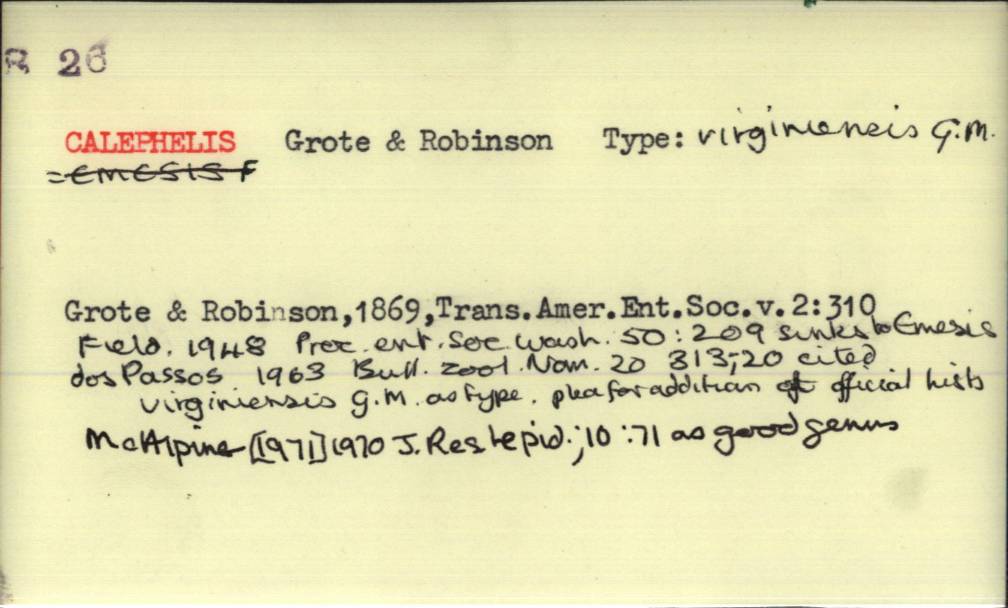 R 26
CALEPHELIS Grote & Robinson Type: virginiensis G.M.
= EMESIS F
Grote & Robinson,1869,Trans.Amer.Ent.Soc.v. 2:310
Field. 1948 Proc. ent. Soc. Wash. 50:209 sinks to Emesis
dos Passos 1963 Bull. zool. Nom. 20 313,-20 cited
virginiensis G.M. as type. plea for addition official lists
McAlpine [1971] 1970 J. Res Lepid.; 10:71 as good genus